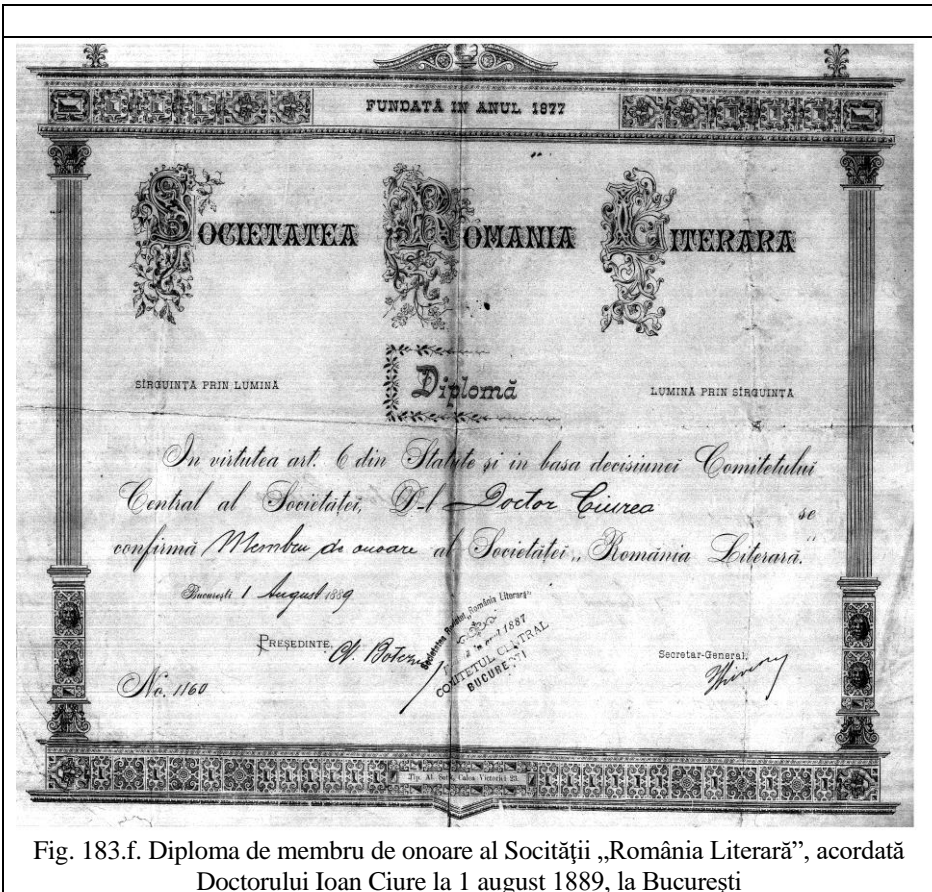 FUNDATĂ IN ANUL 1877
SOCIETATEA ROMANIA LITERARA
SÎRGUINȚA PRIN LUMINĂ
Diplomă
LUMINĂ PRIN SÎRGUINȚA
In virtutea art. 6 din Statute și in basa decisiunei Comitetului
Central al Societăței, D-l Doctor Ciurea se
confirmă Membru de onoare al Societăței „România Literară."
București 1 August 1889
PREȘEDINTE,
Societatea „România Literară"
1887
COMITETUL CENTRAL
BUCUREȘTI
Secretar-General,
No. 1160
Tip. Al. Calea Victoriei 23.
Fig. 183.f. Diploma de membru de onoare al Socităţii „România Literară”, acordată
Doctorului Ioan Ciure la 1 august 1889, la Bucureşti